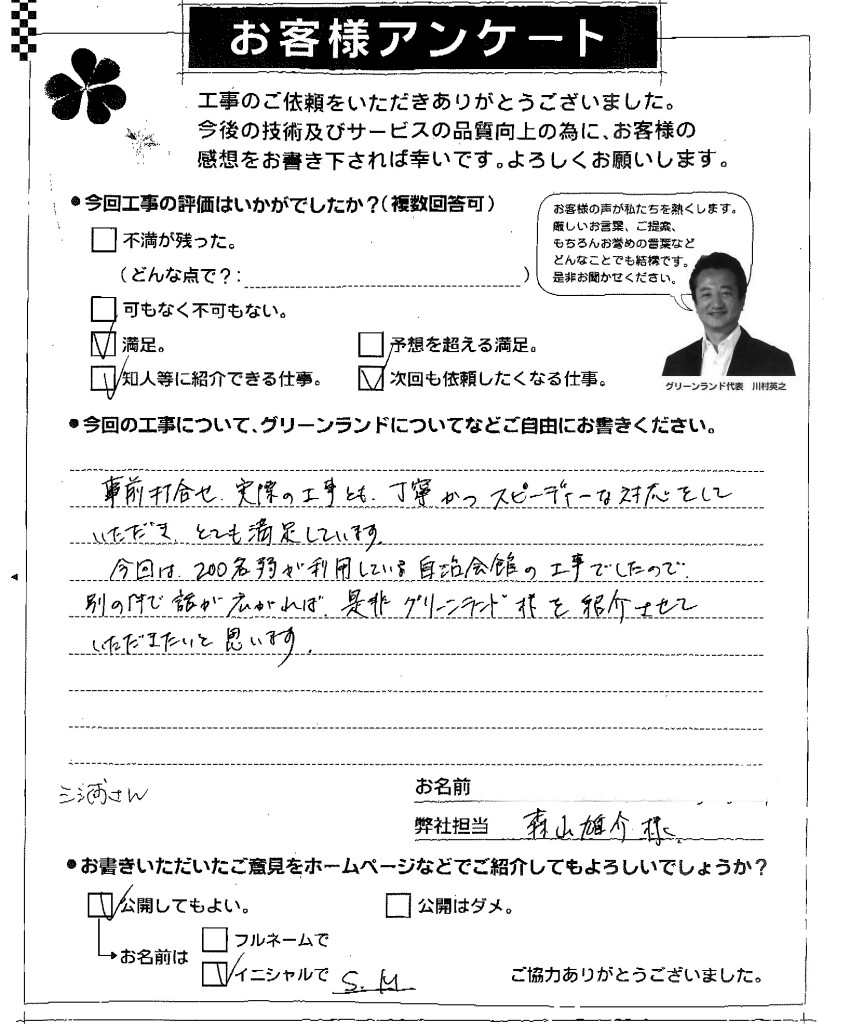 お客様アンケート
工事のご依頼をいただきありがとうございました。
今後の技術及びサービスの品質向上の為に、お客様の
感想をお書き下されば幸いです。よろしくお願いします。
●今回工事の評価はいかがでしたか?(複数回答可)
不満が残った。
(どんな点で?: )
可もなく不可もない。
満足。
予想を超える満足。
知人等に紹介できる仕事。
次回も依頼したくなる仕事。
お客様の声が私たちを熱くします。
厳しいお言葉、ご提案、
もちろんお誉めの言葉など
どんなことでも結構です。
是非お聞かせください。
グリーンランド代表 川村英之
●今回の工事について、グリーンランドについてなどご自由にお書きください。
事前打合せ、実際の工事とも、丁寧かつスピーディーな対応をして
いただき、とても満足しています。
今回は、200名弱が利用している自治会館の工事でしたので、
別の件で話が広がれば、是非グリーンランド様を紹介させて
いただきたいと思います。
三浦さん
お名前
弊社担当 森山雄介様
●お書きいただいたご意見をホームページなどでご紹介してもよろしいでしょうか?
公開してもよい。
公開はダメ。
お名前は
フルネームで
イニシャルで S.M
ご協力ありがとうございました。